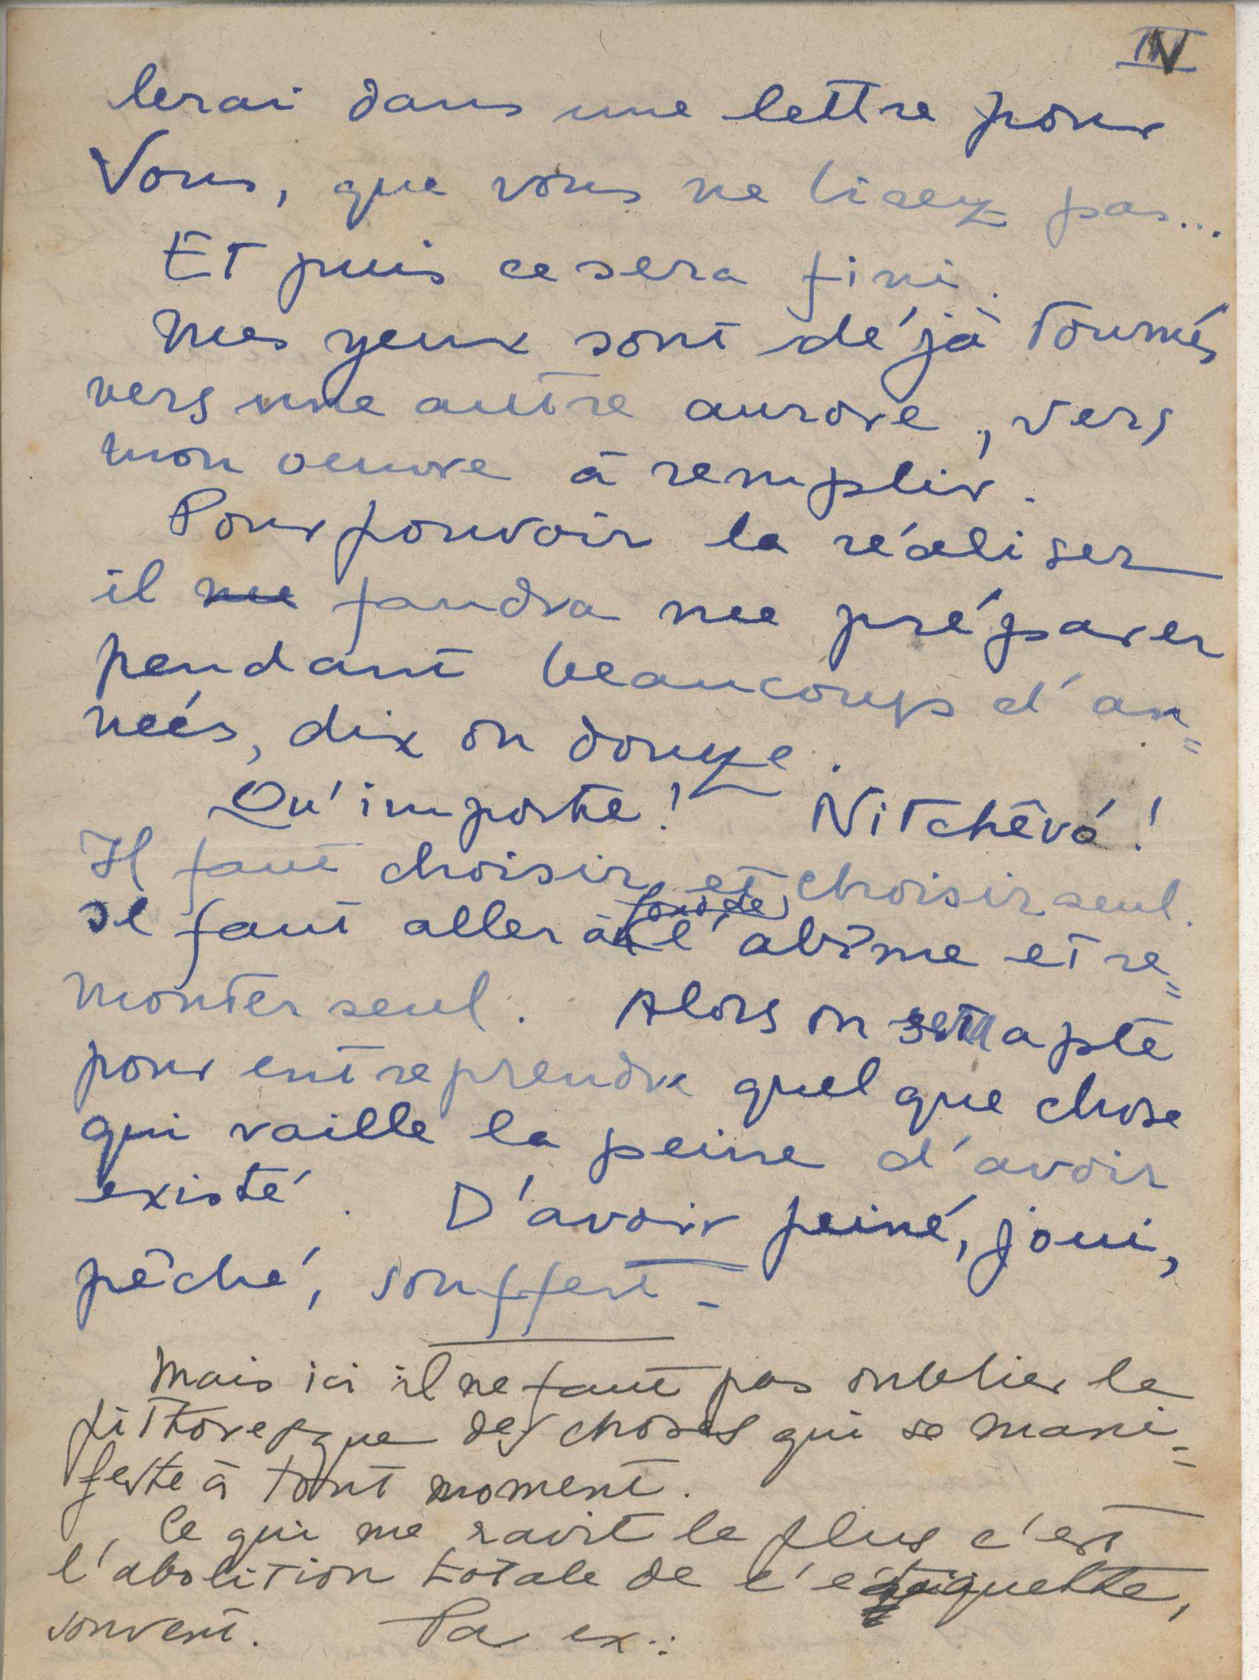 IV
lerai dans une lettre pour
Vous, que vous ne lisez pas...
Et puis ce sera fini.
Mes yeux sont déjà tournés
vers une autre aurore, vers
mon oeuvre à remplir.
Pour pouvoir la réaliser
il me faudra me préparer
pendant beaucoups d'an=
neés, dix ou douze.
Qu'importe! Nitchêvó!
Il faut choisir, et choisir seul.
Il faut aller à l'abîme et re=
monter seul. Alors on sera apte
pour entreprendre quelque chose
qui vaille la peine d'avoir
existé. D'avoir peiné, joui,
pêché, souffert -
Mais ici il ne faut pas oublier le
pittoresque des choses qui se mani=
feste à tout moment.
Ce qui me ravit le plus c'est
l'abolition totale de l'étiquette,
souvent. Pa ex.: